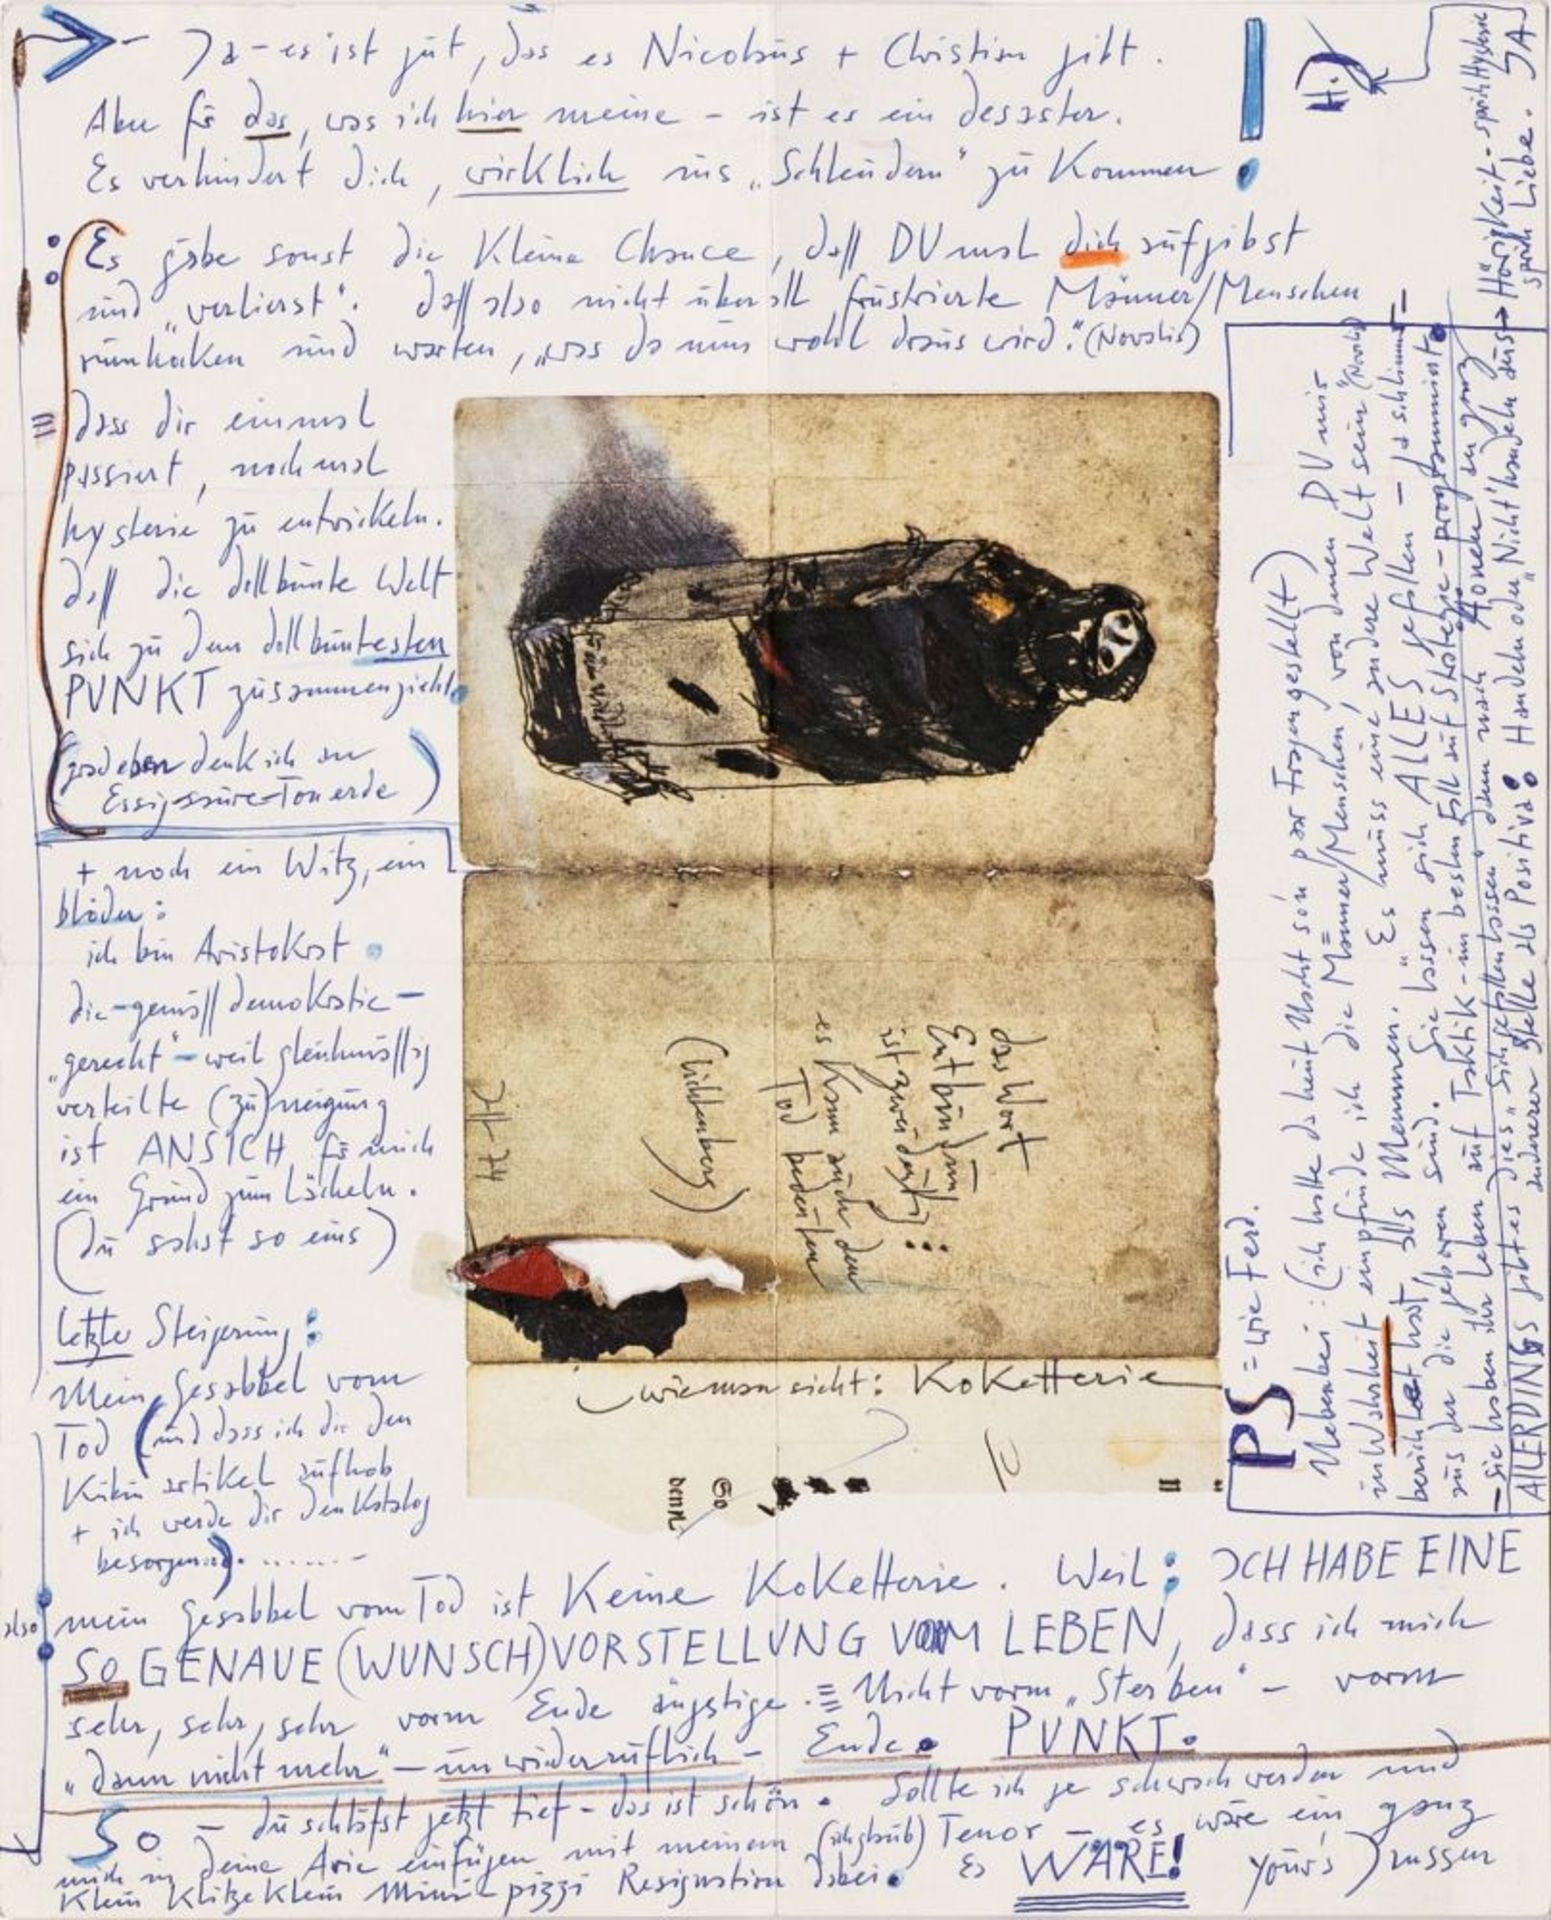 – Ja – es ist gut, das es Nicolaus + Christian gibt.
Aber für das, was ich hier meine – ist es ein desaster.
Es verhindert dich, wirklich ins „Schleudern“ zu Kommen!
: Es gäbe sonst die Kleine Chance, daß DU mal dich aufgibst
und „verlierst“. daß also nicht überall frustrierte Männer/Menschen
rumhaken und warten, „was da nun wohl draus wird.“ (Novalis)
dass dir einmal
passiert, nochmal
hysterie zu entwickeln.
daß die dollbunte Welt
sich zu dem dollbuntesten
PUNKT zusammenzieht.
(gradeben denk ich an
Essig-saure-Tonerde)
+ noch ein Witz, ein
blöder:
ich bin Aristokrat.
die – gemäß demokratie –
„gerecht“ – weil gleichmäßig
verteilte (zu)neigung
ist ANSICH für mich
ein Grund zum Lächeln.
(du sahst so eins)
letzte Steigerung:
Mein Gesabbel vom
Tod (und dass ich dir den
Kubin artikel aufhob
+ ich werde dir den Katalog
besorgen)........–
das Wort
Entbindung
ist zweideutig:
es Kann auch den
Tod bedeuten
(Lichtenberg)
wie man sieht: Koketterie
So
denn
also mein Gesabbel vom Tod ist Keine Koketterie. Weil: ICH HABE EINE
SO GENAUE (WUNSCH)VORSTELLUNG VOM LEBEN, dass ich mich
sehr, sehr, sehr vorm Ende ängstige. Nicht vorm „Sterben“ – vorm
„dann nicht mehr“ – unwiderruflich – Ende. PUNKT.
So – du schläfst jetzt tief – das ist schön. Sollte ich je schwach werden und
mich in deine Arie einfügen mit meinem (ichglaub) Tenor – es wäre ein ganz
Klein Klitzeklein Mini-pizzi Resignation dabei. Es WÄRE! yours
PS = wie Ferd.
Nebenbei: (ich hatte da heut Nacht son paar Fragen gestellt)
in Wahrheit empfinde ich die Männer/Menschen, von denen DU mir
berichtet hast, als Memmen. „Es muss eine andere Welt sein“ (Novalis)
aus der die geboren sind. Sie lassen sich ALLES gefallen – ja schlimmer –
– sie haben ihr Leben auf Taktik – im besten Fall auf Strategie – programmiert.
ALLERDINGS gibt es dies „sich gefallen lassen“ dann nach in ganz
anderer Stelle als Positiva: Handeln oder „Nicht“handeln aus → Hörigkeit – sprich Hysterie
sprich Liebe. JA
H.)